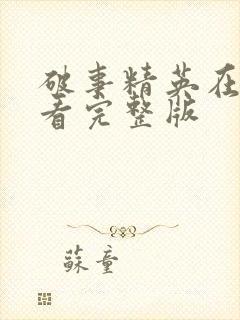 破事精英在
看完整版
蘇童